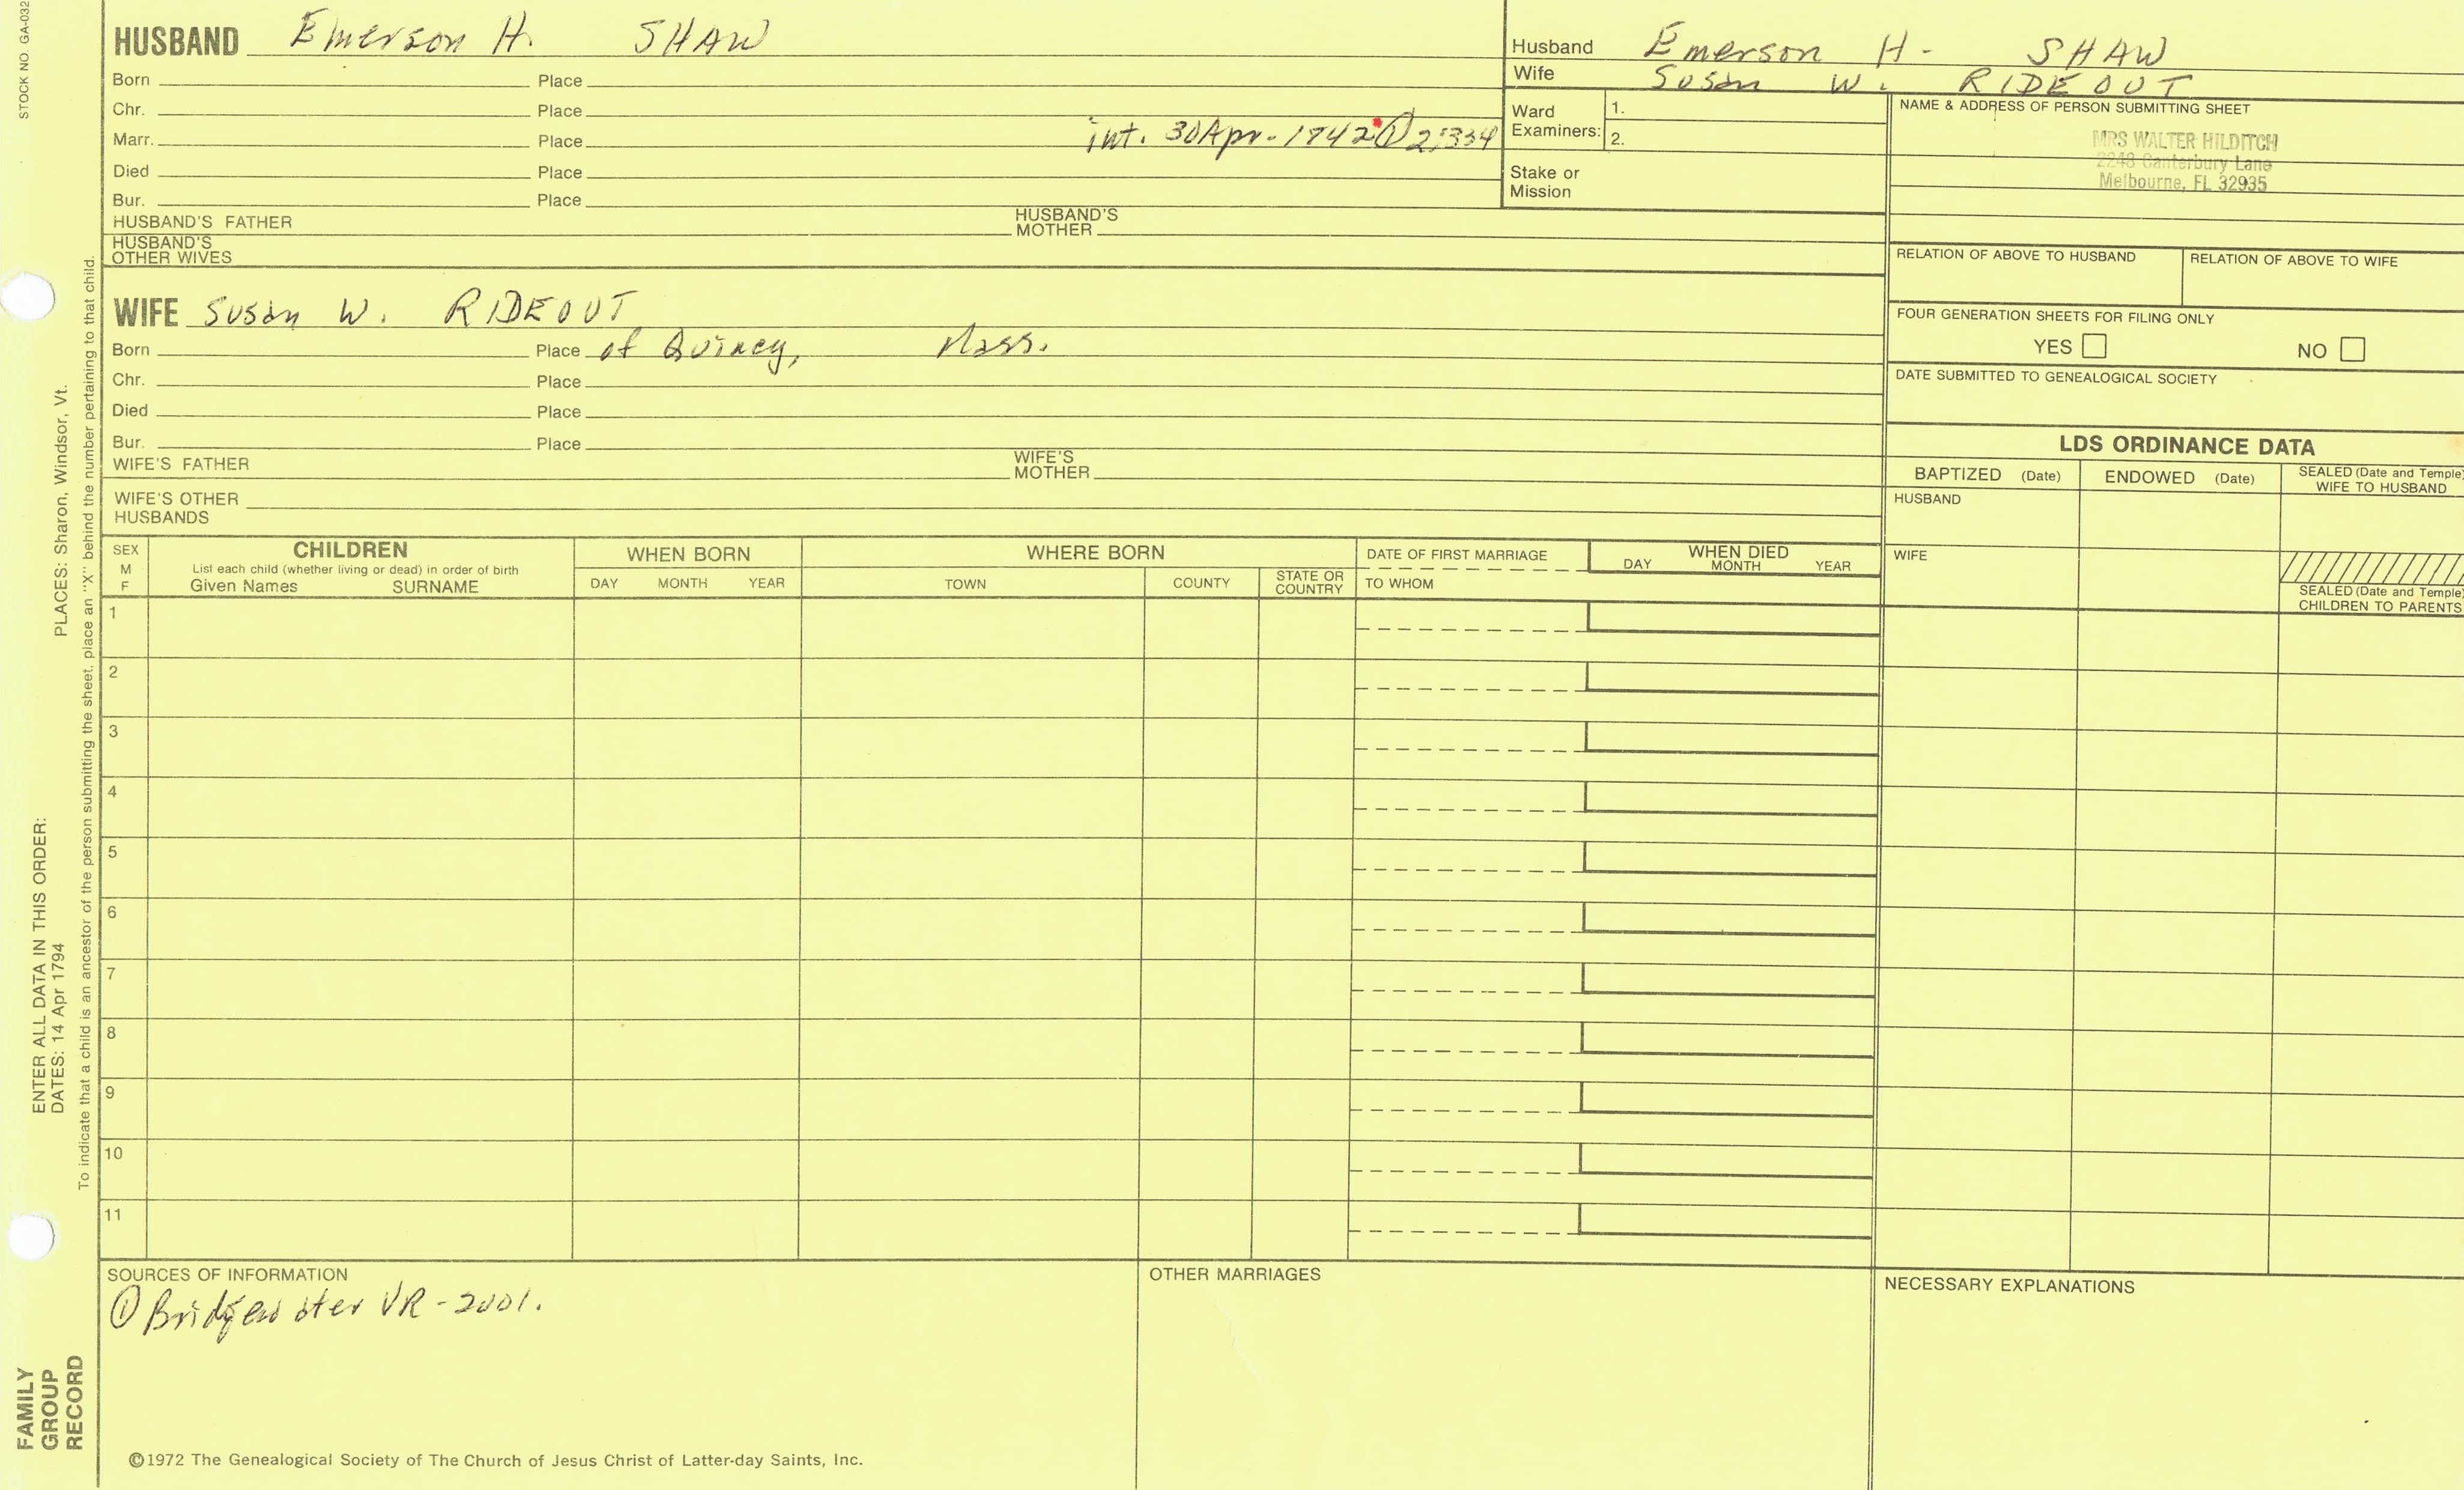 STOCK NO. GA-032
PLACES: Sharon, Windsor, Vt.
ENTER ALL DATA IN THIS ORDER:
DATES: 14 Apr 1794
To indicate that a child is an ancestor of the person submitting the sheet, place an "X" behind the number pertaining to that child.
FAMILY
GROUP
RECORD
HUSBAND Emerson H. SHAW
Born Place
Chr. Place
Marr. Place int. 30 Apr-1842 ① 2:334
Died Place
Bur. Place
HUSBAND'S FATHER HUSBAND'S MOTHER
HUSBAND'S OTHER WIVES
Husband Emerson H- SHAW
Wife Susan W. RIDEOUT
Ward Examiners: 1.
2.
Stake or Mission
NAME & ADDRESS OF PERSON SUBMITTING SHEET
MRS WALTER HILDITCH
2248 Canterbury Lane
Melbourne, FL 32935
RELATION OF ABOVE TO HUSBAND RELATION OF ABOVE TO WIFE
FOUR GENERATION SHEETS FOR FILING ONLY
YES NO
DATE SUBMITTED TO GENEALOGICAL SOCIETY
WIFE Susan W. RIDEOUT
Born Place of Quincy, Mass.
Chr. Place
Died Place
Bur. Place
WIFE'S FATHER WIFE'S MOTHER
WIFE'S OTHER HUSBANDS
LDS ORDINANCE DATA
BAPTIZED (Date) ENDOWED (Date) SEALED (Date and Temple) WIFE TO HUSBAND
HUSBAND
WIFE
SEALED (Date and Temple) CHILDREN TO PARENTS
SEX M F
CHILDREN
List each child (whether living or dead) in order of birth
Given Names SURNAME
WHEN BORN
DAY MONTH YEAR
WHERE BORN
TOWN COUNTY STATE OR COUNTRY
DATE OF FIRST MARRIAGE
TO WHOM
WHEN DIED
DAY MONTH YEAR
1
2
3
4
5
6
7
8
9
10
11
SOURCES OF INFORMATION
① Bridgewater VR-2001.
OTHER MARRIAGES
NECESSARY EXPLANATIONS
©1972 The Genealogical Society of The Church of Jesus Christ of Latter-day Saints, Inc.